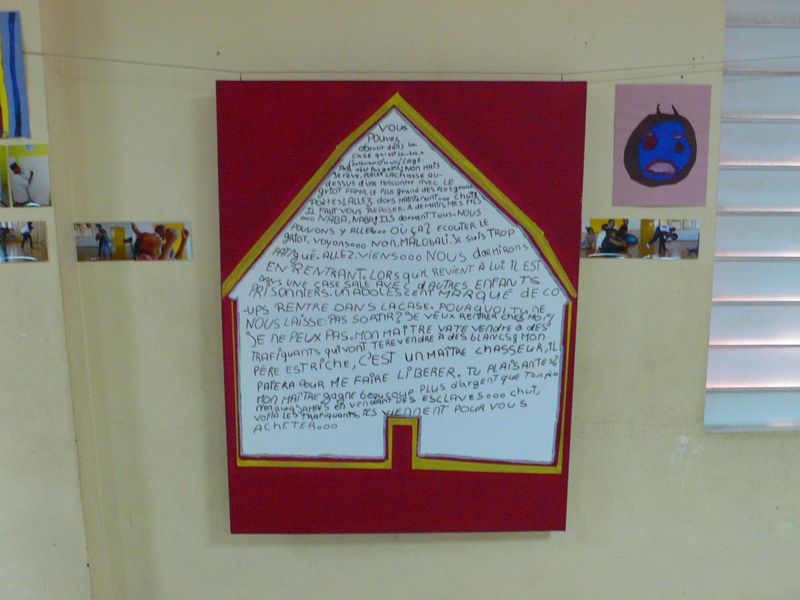 VOUS
POUVEZ
dormir dans la
case qui est
du village
NON MAIS
JE RÊVE. LA CHASSE AU-
DESSUS d'une RENCONTRE AVEC LE
griot FAMA, LE PLUS GRAND des PLUS grands
POÈTES! ALLEZ. dors MAINTENANT... CHUT
IL FAUT VOUS REPOSER. À DEMAIN, MES FILS
... NABA, NABA, ILS dorment Tous. NOUS
POUVONS Y ALLER... OÙ ÇA? ECOUTER LE
griot. VOYONS... NON, MALOBALI. JE SUIS TROP
FATIGUÉ. ALLEZ. VIENS... NOUS DORMIRONS
EN RENTRANT. LORSQU'IL REVIENT À LUI IL EST
DANS UNE CASE SALE AVEC d'AUTRES ENFANTS
PRISONNIERS. UN ADOLESCENT MARQUÉ DE CO
-UPS RENTRE DANS LA CASE. POURQUOI TU NE
NOUS LAISSE PAS SORTIR? JE VEUX RENTRER CHEZ MOI!
JE NE PEUX PAS. MON MAÎTRE VA TE VENDRE À DES
TRAFIQUANTS QUI VONT TE REVENDRE À DES BLANCS. MON
PÈRE EST RICHE, C'EST UN MAÎTRE CHASSEUR, IL
PAIERA POUR ME FAIRE LIBERER. TU PLAISANTES?
MON MAÎTRE gagne BEAUCOUP PLUS d'argent QUE TON père
n'en aura JAMAIS EN VENDANT DES ESCLAVES... CHUT,
VOILÀ LES TRAFIQUANTS, ILS VIENNENT POUR VOUS
ACHETER...